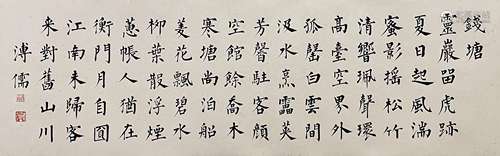 錢塘
靈巖留虎跡
夏日起風湍
蜜影搖松竹
清響珮聲環
高臺空界外
孤磬白雲間
汲水烹靈
芳馨駐客顏
空館餘喬木
寒塘尚泊船
菱花飄碧水
柳葉散浮煙
蕙帳人猶在
衡門月自圓
江南未歸客
来對舊山川
溥儒